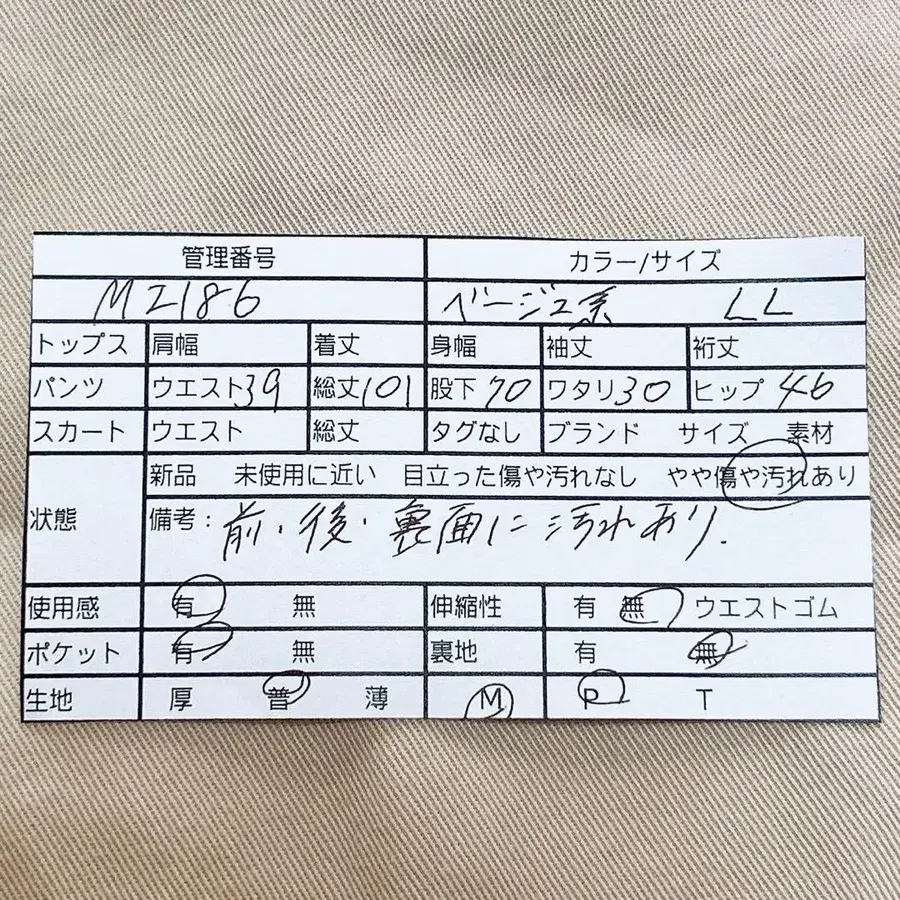 管理番号 カラー/サイズ
M2186 ベージュ系 LL
トップス 肩幅 着丈 身幅 袖丈 裄丈
パンツ ウエスト39 総丈101 股下70 ワタリ30 ヒップ46
スカート ウエスト 総丈 タグなし ブランド サイズ 素材
新品 未使用に近い 目立った傷や汚れなし やや傷や汚れあり
状態 備考：前・後・裏面に汚れあり.
使用感 有 無 伸縮性 有 無 ウエストゴム
ポケット 有 無 裏地 有 無
生地 厚 普 薄 M P T